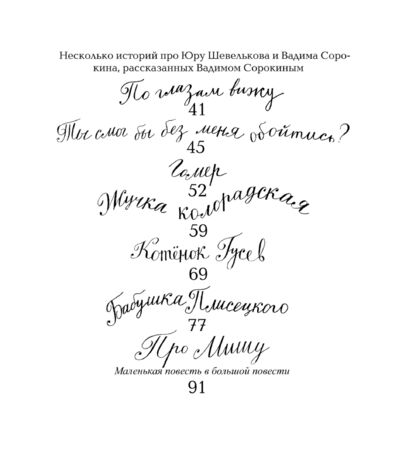 Несколько историй про Юру Шевелькова и Вадима Соро-
кина, рассказанных Вадимом Сорокиным
По глазам вижу
41
Ты смог бы без меня обойтись?
45
Гомер
52
Жучка колорадская
59
Котёнок Гусев
69
Бабушка Плисецкого
77
Про Мишу
Маленькая повесть в большой повести
91